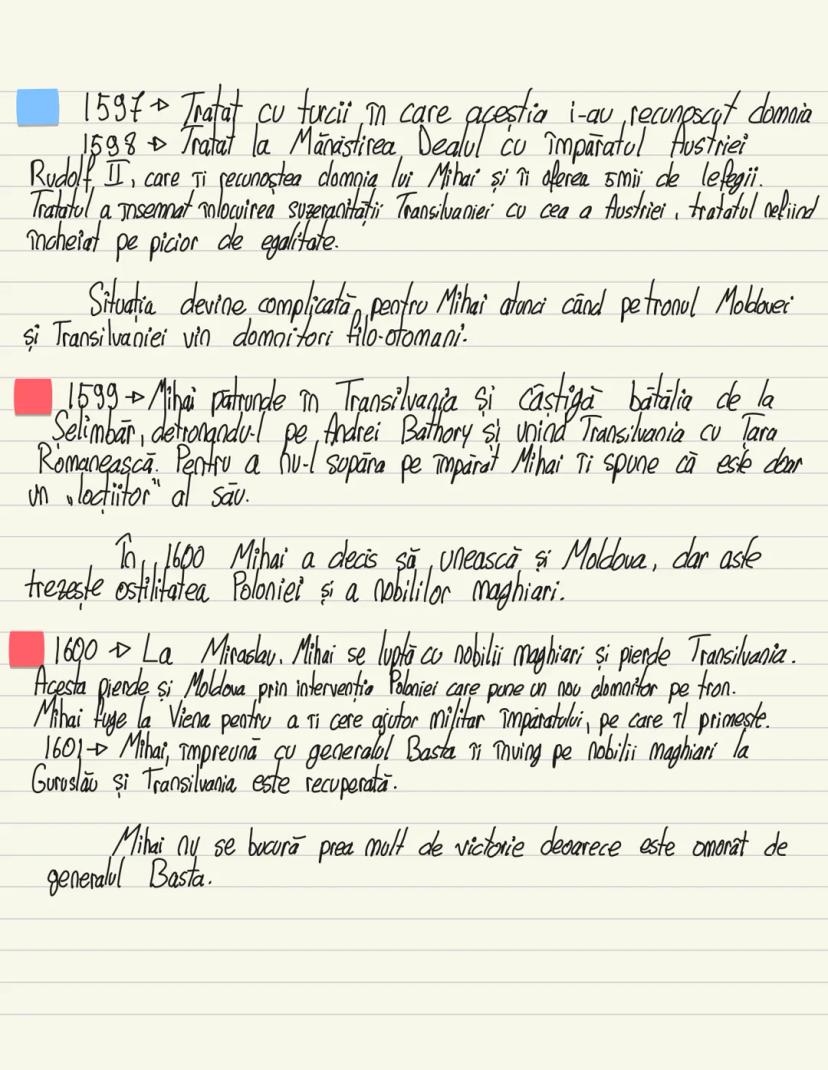 1597 → Tratat cu turcii în care aceștia i-au recunoscut domnia
1598 → Tratat la Mănăstirea Dealul cu împăratul Austriei
Rudolf II, care îi recunoștea domnia lui Mihai și îi oferea 5mii de lefegii.
Tratatul a însemnat înlocuirea suzeranității Transilvaniei cu cea a Austriei, tratatul nefiind
încheiat pe picior de egalitate.
Situația devine complicată pentru Mihai atunci când pe tronul Moldovei
și Transilvaniei vin domnitori filo-otomani.
1599 → Mihai pătrunde în Transilvania și câstigă bătălia de la
Selimbăr, detronandu-l pe Andrei Bathory și unind Transilvania cu Țara
Românească. Pentru a nu-l supăra pe împărat Mihai îi spune că este doar
un „locțiitor" al său.
În 1600 Mihai a decis să unească și Moldova, dar asta
trezește ostilitatea Poloniei și a nobililor maghiari.
1600 → La Miraslau, Mihai se luptă cu nobilii maghiari și pierde Transilvania.
Acesta pierde și Moldova prin intervenția Poloniei care pune un nou domnitor pe tron.
Mihai fuge la Viena pentru a îi cere ajutor militar împăratului, pe care îl primește.
1601 → Mihai, împreună cu generalul Basta îi înving pe nobilii maghiari la
Guruslău și Transilvania este recuperată.
Mihai nu se bucură prea mult de victorie deoarece este omorât de
generalul Basta.